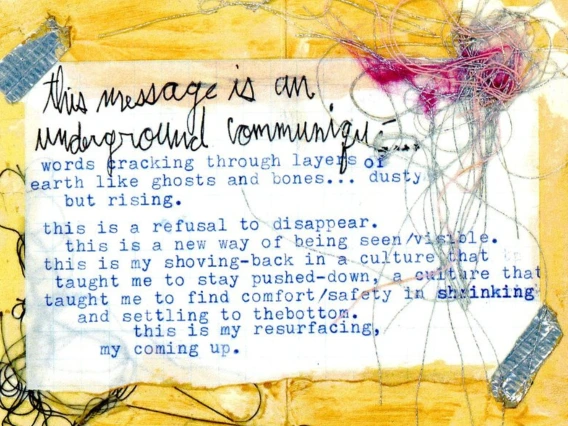 this message is an
underground communiqué
words cracking through layers of
earth like ghosts and bones... dusty
but rising.
this is a refusal to disappear.
this is a new way of being seen/visible.
this is my shoving-back in a culture that
taught me to stay pushed-down, a culture that
taught me to find comfort/safety in shrinking
and settling to thebottom.
this is my resurfacing,
my coming up.